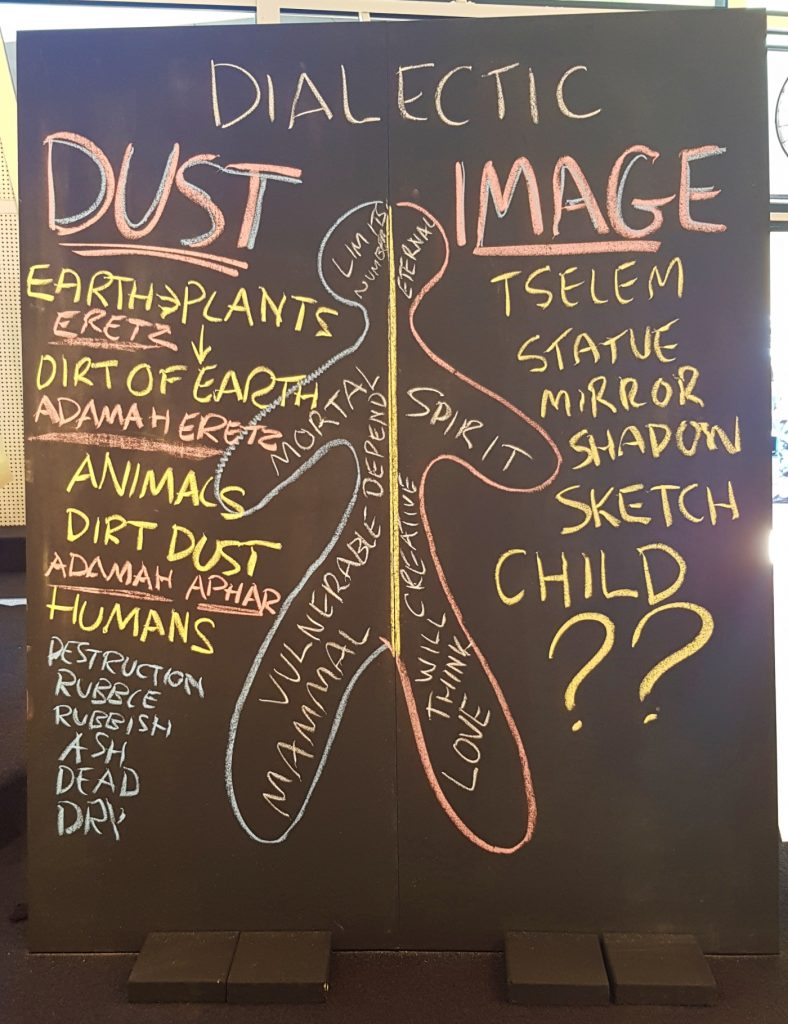 DIALECTIC
DUST
EARTH → PLANTS
ERETZ
↓
DIRT OF EARTH
ADAMAH ERETZ
ANIMALS
DIRT DUST
ADAMAH APHAR
HUMANS
DESTRUCTION
RUBBLE
RUBBISH
ASH
DEAD
DRY
LIMITS
MORTAL
DEPEND
VULNERABLE
MAMMAL
ETERNAL
SPIRIT
CREATIVE
WILL
THINK
LOVE
IMAGE
TSELEM
STATUE
MIRROR
SHADOW
SKETCH
CHILD
??